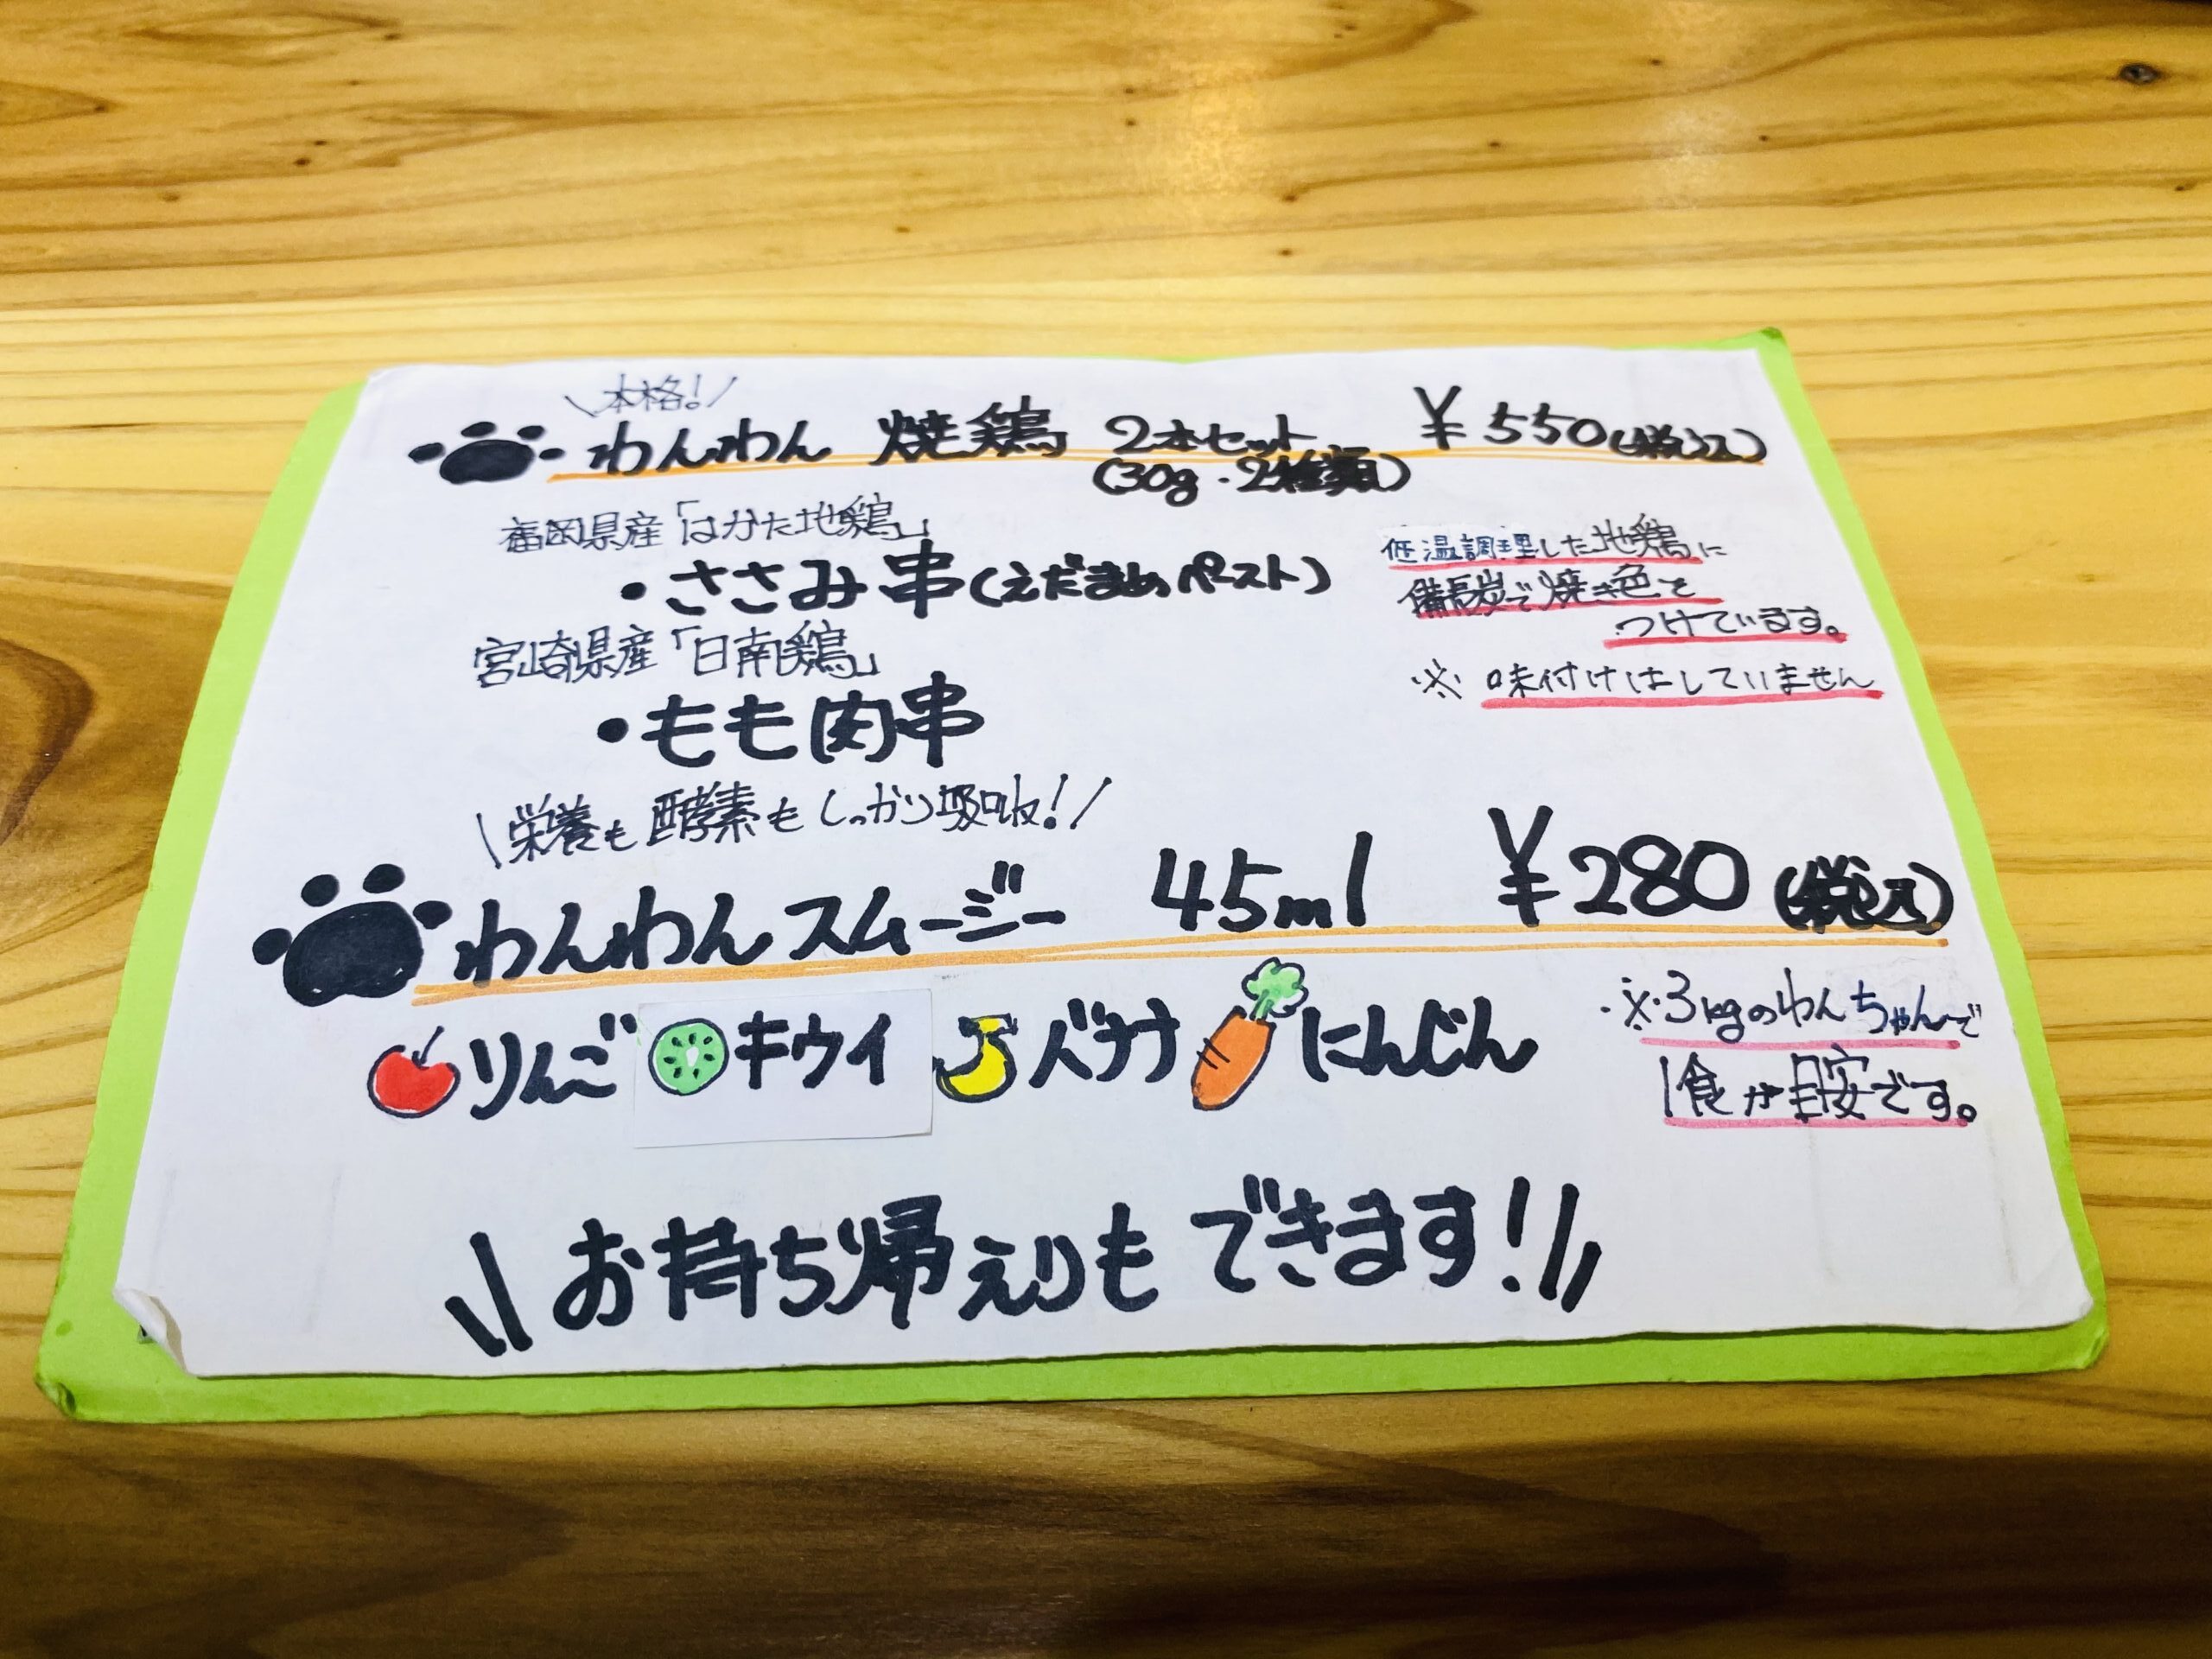 \本格!/
わんわん 焼鶏 2本セット ¥550(税込)
(30g・2種類)
福岡県産「はかた地鶏」
・ささみ串(えだまめペースト)
宮崎県産「日南鶏」
・もも肉串
低温調理した地鶏に
備長炭で焼き色を
つけています。
※ 味付けはしていません
\栄養も酵素もしっかり吸収!/
わんわんスムージー 45ml ¥280(税込)
りんご キウイ バナナ にんじん
※3kgのわんちゃんで
1食が目安です。
\\お持ち帰えりもできます!//